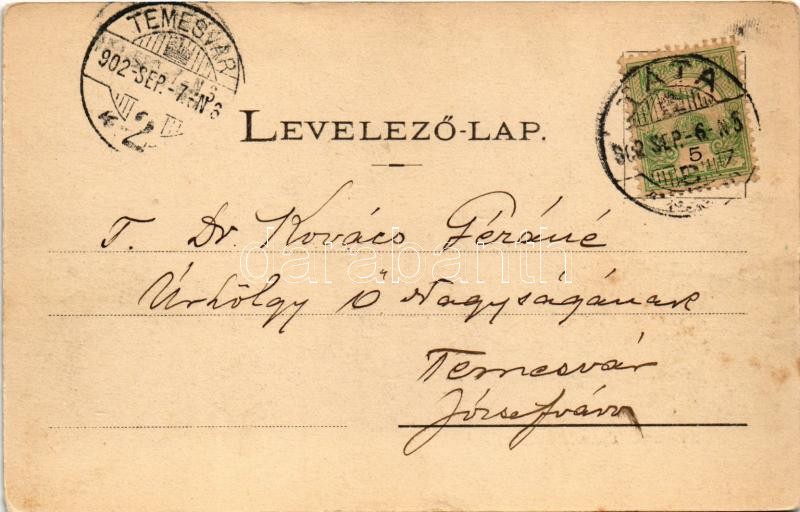 TEMESVÁR
902-SEP.-7.-N6
2
TATA
902 SEP.-6.-N5
5
LEVELEZŐ-LAP.
T. Dr. Kovács Géráné
Úrhölgy Ő Nagyságának
Temesvár
Józsefváros
darabanth